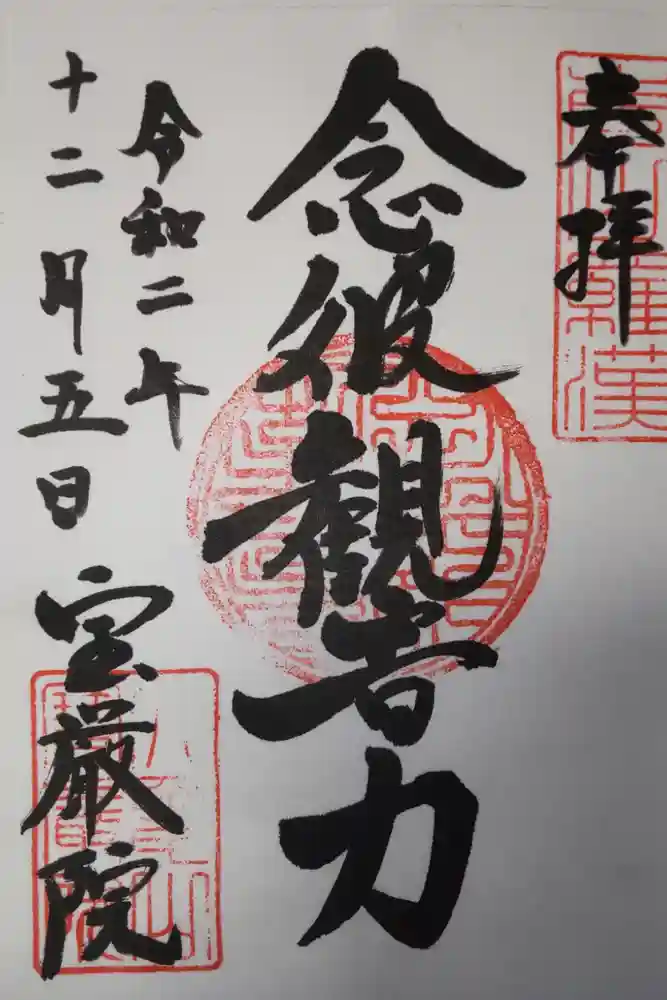 奉拝
念彼観音力
令和二年
十二月五日
宝厳院